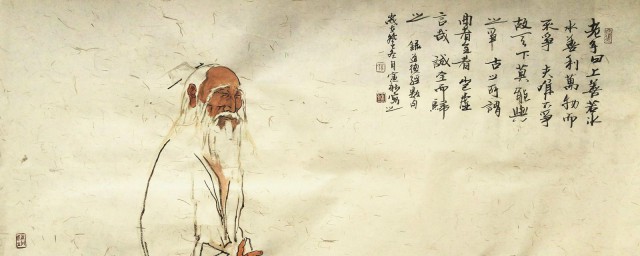 老子曰上善若水
水善利萬物而
不爭夫唯不爭
故天下莫能與
之爭古之所謂
曲者全者豈虛
言哉誠全而歸
之錄道德經數句
歲在冬月寫之